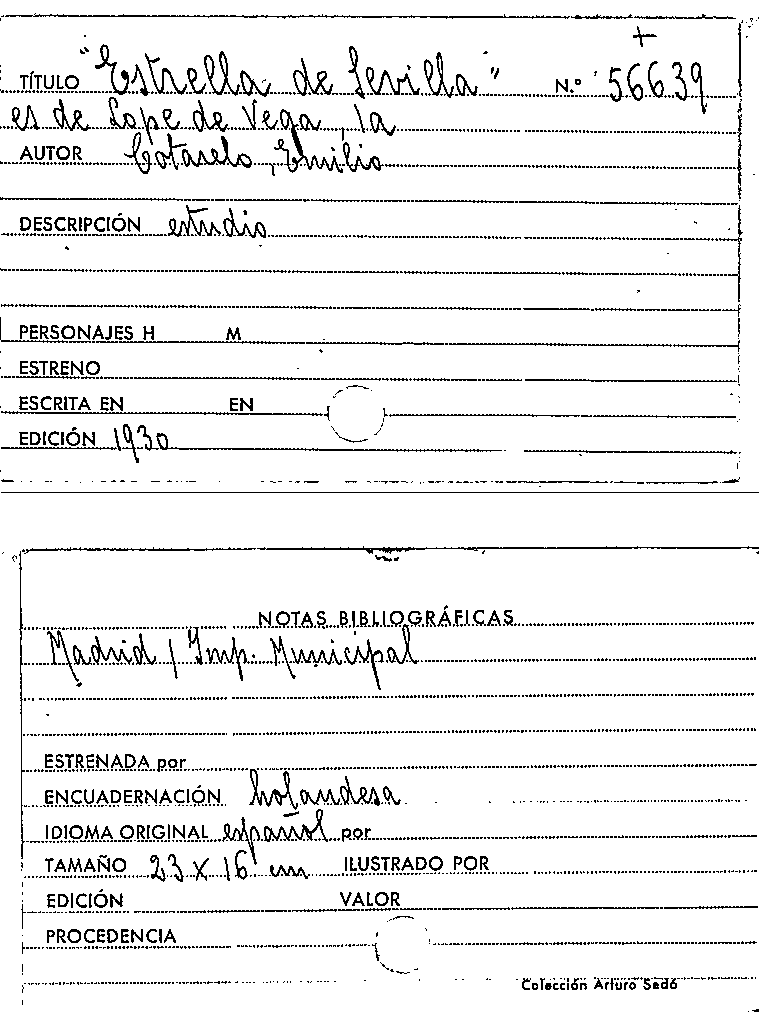 +
TÍTULO "Estrella de Sevilla" N.º 56639
es de Lope de Vega, la
AUTOR Cotarelo, Emilio
DESCRIPCIÓN estudio
PERSONAJES H M
ESTRENO
ESCRITA EN EN
EDICIÓN 1930
NOTAS BIBLIOGRÁFICAS
Madrid / Imp. Municipal
ESTRENADA por
ENCUADERNACIÓN holandesa
IDIOMA ORIGINAL español por
TAMAÑO 23 X 16 cm ILUSTRADO POR
EDICIÓN VALOR
PROCEDENCIA
Colección Arturo Sedó